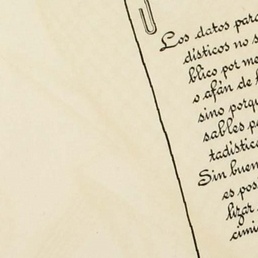 Los datos para
dísticos no s
blico por me
o afán de
sino porqu
sables p
tadístic
Sin buen
es pos
lizar
cimi